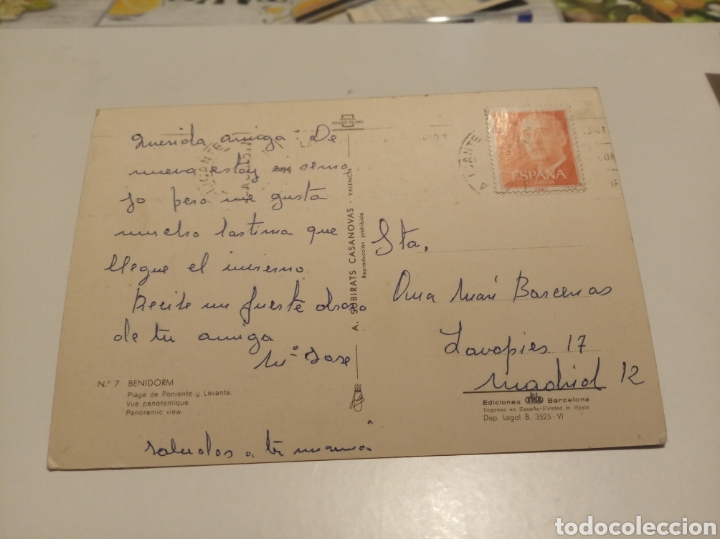 Querida amiga: De
nuevo estoy en
pero me gusta
mucho lastima que
llegue el invierno
Recibe un fuerte abrazo
de tu amiga
Mª Jose
Nº 7 BENIDORM
Playa de Poniente y Levante
Vue panoramique
Panoramic view.
saludos a tu mamá
A. SUBIRATS CASANOVAS - VALENCIA
Reproducción prohibida
ALICANTE
ALICANTE
ESPAÑA
Sta.
Ana Mari Barcenas
Lavapies 17
Madrid 12
Ediciones Barcelona
Impreso en España
Dep. Legal B. 3525-VI
todocoleccion